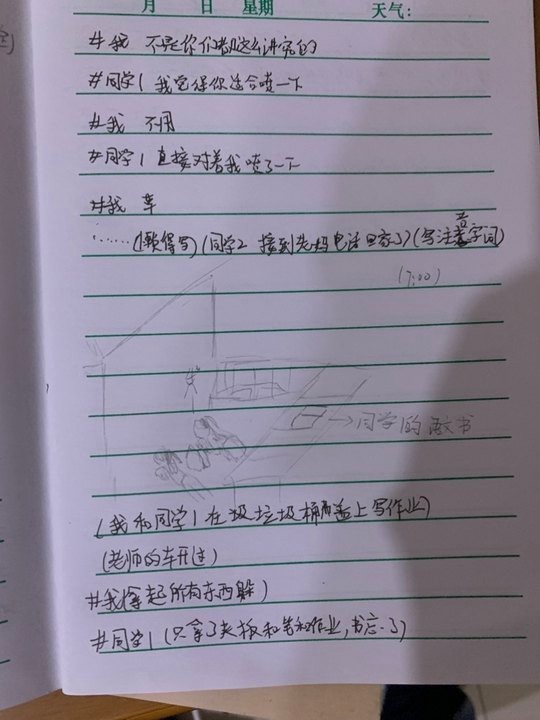 月 日 星期 天气：
#我 不是你们都这么讲究的
#同学1 我觉得你适合喷一下
#我 不用
#同学1 直接对着我喷了一下
#我 草
……(懒得写)(同学2 接到先妈电话回家了)(写注音字词)
(7:00)
→同学的语文书
(我和同学1在圾垃圾桶盖上写作业)
(老师的车开过)
#我(拿起所有东西躲)
#同学1(只拿了夹板和笔和作业，书忘了)